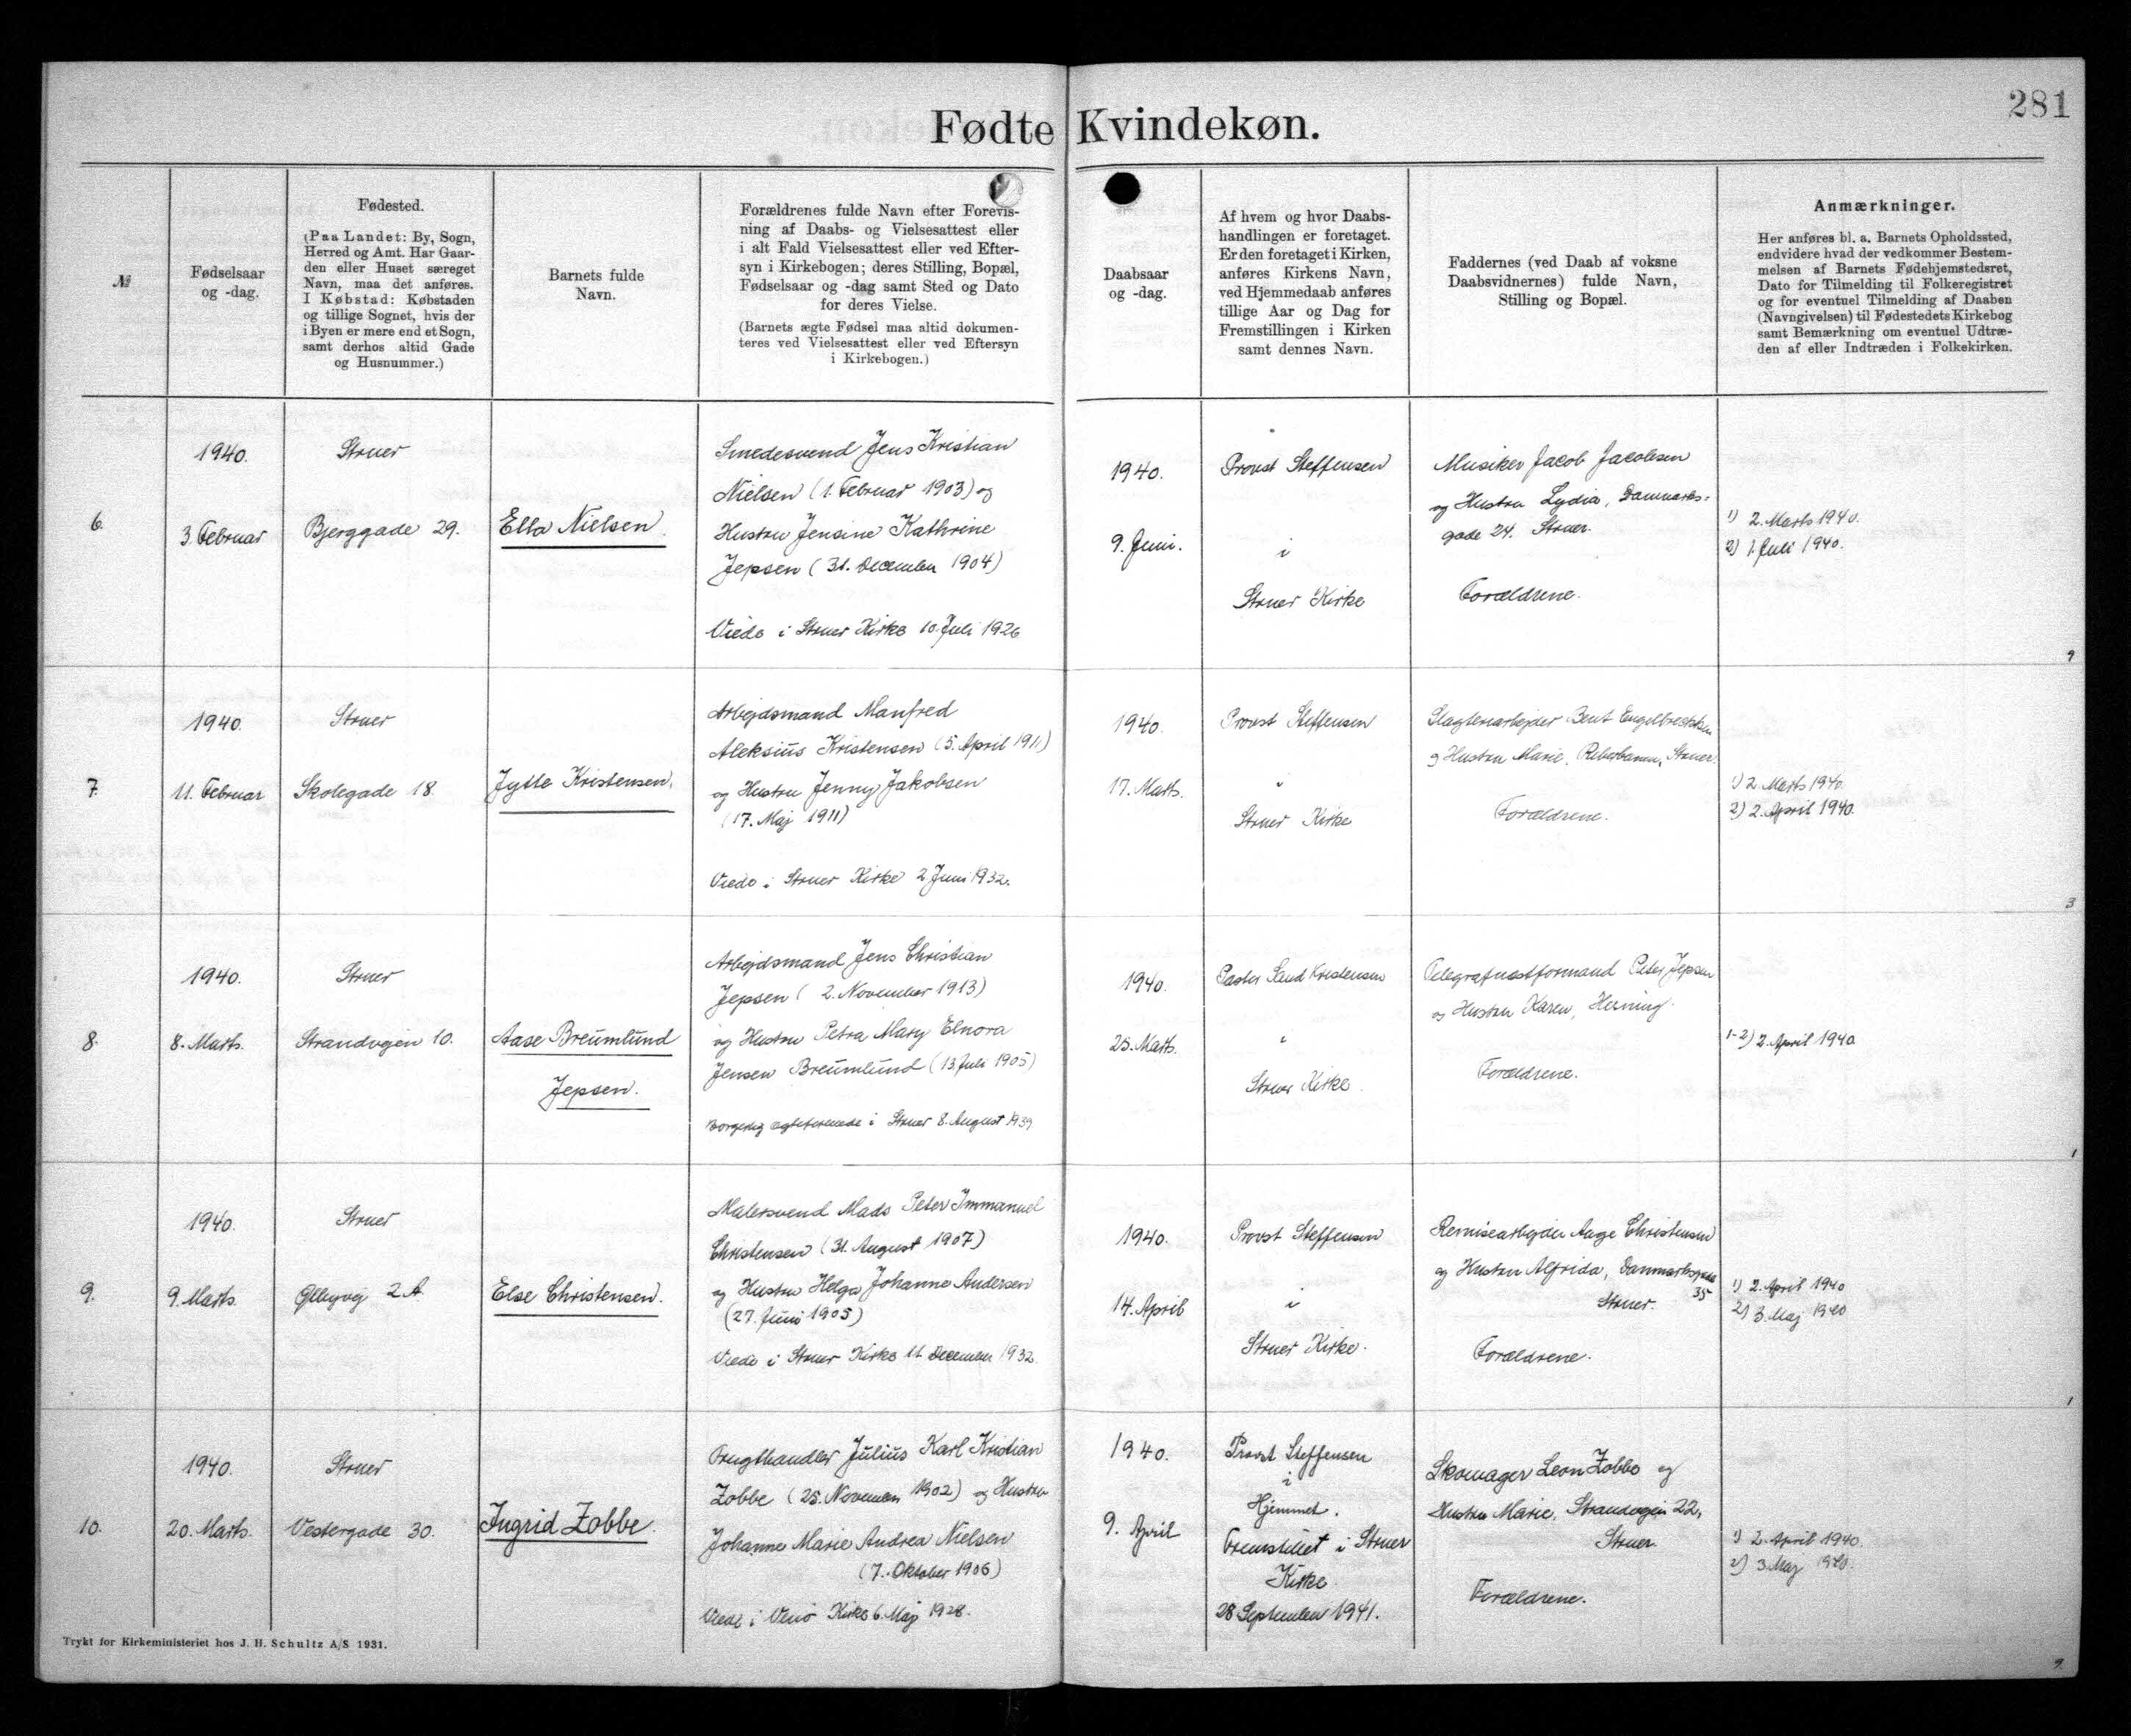 281
Fødte Kvindekøn.
№
Fødselsaar
og -dag.
Fødested.
(Paa Landet: By, Sogn,
Herred og Amt. Har Gaar-
den eller Huset særeget
Navn, maa det anføres.
I Købstad: Købstaden
og tillige Sognet, hvis der
i Byen er mere end et Sogn,
samt derhos altid Gade
og Husnummer.)
Barnets fulde
Navn.
Forældrenes fulde Navn efter Forevis-
ning af Daabs- og Vielsesattest eller
i alt Fald Vielsesattest eller ved Efter-
syn i Kirkebogen; deres Stilling, Bopæl,
Fødselsaar og -dag samt Sted og Dato
for deres Vielse.
(Barnets ægte Fødsel maa altid dokumen-
teres ved Vielsesattest eller ved Eftersyn
i Kirkebogen.)
Daabsaar
og -dag.
Af hvem og hvor Daabs-
handlingen er foretaget.
Er den foretaget i Kirken,
anføres Kirkens Navn,
ved Hjemmedaab anføres
tillige Aar og Dag for
Fremstillingen i Kirken
samt dennes Navn.
Faddernes (ved Daab af voksne
Daabsvidnernes) fulde Navn,
Stilling og Bopæl.
Anmærkninger.
Her anføres bl. a. Barnets Opholdssted,
endvidere hvad der vedkommer Bestem-
melsen af Barnets Fødehjemstedsret,
Dato for Tilmelding til Folkeregistret
og for eventuel Tilmelding af Daaben
(Navngivelsen) til Fødestedets Kirkebog
samt Bemærkning om eventuel Udtræ-
den af eller Indtræden i Folkekirken.
6.
1940.
3. Februar
Struer
Bjerggade 29.
Ella Nielsen.
Smedesvend Jens Kristian
Nielsen (1. Februar 1903) og
Hustru Jensine Kathrine
Jepsen (31. December 1904)
Viede i Struer Kirke 10. Juli 1926
1940.
9. Juni.
Provst Steffensen
i
Struer Kirke
Musiker Jacob Jacobsen
og Hustru Lydia, Danmarks-
gade 24. Struer.
Forældrene.
1) 2. Marts 1940.
2) 1. Juli 1940.
9
7.
1940.
11. Februar
Struer
Skolegade 18.
Jytte Kristensen.
Arbejdsmand Manfred
Aleksius Kristensen (5. April 1911)
og Hustru Jenny Jakobsen
(17. Maj 1911)
Viede i Struer Kirke 2. Juni 1932.
1940.
17. Marts.
Provst Steffensen
i
Struer Kirke
Slagteriarbejder Bent Engelbrechtsen
og Hustru Marie, Struer.
Forældrene.
1) 2. Marts 1940.
2) 2. April 1940.
3
8.
1940.
8. Marts.
Struer
Strandvejen 10.
Aase Breumlund
Jepsen.
Arbejdsmand Jens Christian
Jepsen (2. November 1913)
og Hustru Petra Mary Elnora
Jensen Breumlund (13. Juli 1905)
Borgerlig ægteforenede i Struer 8. August 1939
1940.
25. Marts.
Pastor Sand Kristensen
i
Struer Kirke.
Telegrafnestformand Peter Jepsen
og Hustru Karen, Herning.
Forældrene.
1-2) 2. April 1940
1
9.
1940.
9. Marts.
Struer
Ølbyvej 2 A.
Else Christensen.
Malersvend Mads Peter Immanuel
Christensen (31. August 1907)
og Hustru Helga Johanne Andersen
(27. Juni 1905)
Viede i Struer Kirke 11. December 1932.
1940.
14. April
Provst Steffensen
i
Struer Kirke.
Remisearbejder Aage Christensen
og Hustru Alfrida, Danmarksgade
35
Struer.
Forældrene.
1) 2. April 1940
2) 3. Maj 1940
1
10.
1940.
20. Marts.
Struer
Vestergade 30.
Ingrid Zobbe.
Frugthandler Julius Karl Kristian
Zobbe (25. November 1902) og Hustru
Johanne Marie Andrea Nielsen
(7. Oktober 1906)
Viede i Venø Kirke 6. Maj 1928.
1940.
9. April
Provst Steffensen
i
Hjemmet.
Fremstillet i Struer
Kirke
28 September 1941.
Skomager Leon Zobbe og
Hustru Marie, Strandvejen 22,
Struer.
Forældrene.
1) 2. April 1940.
2) 3. Maj 1940.
9
Trykt for Kirkeministeriet hos J. H. Schultz A/S 1931.